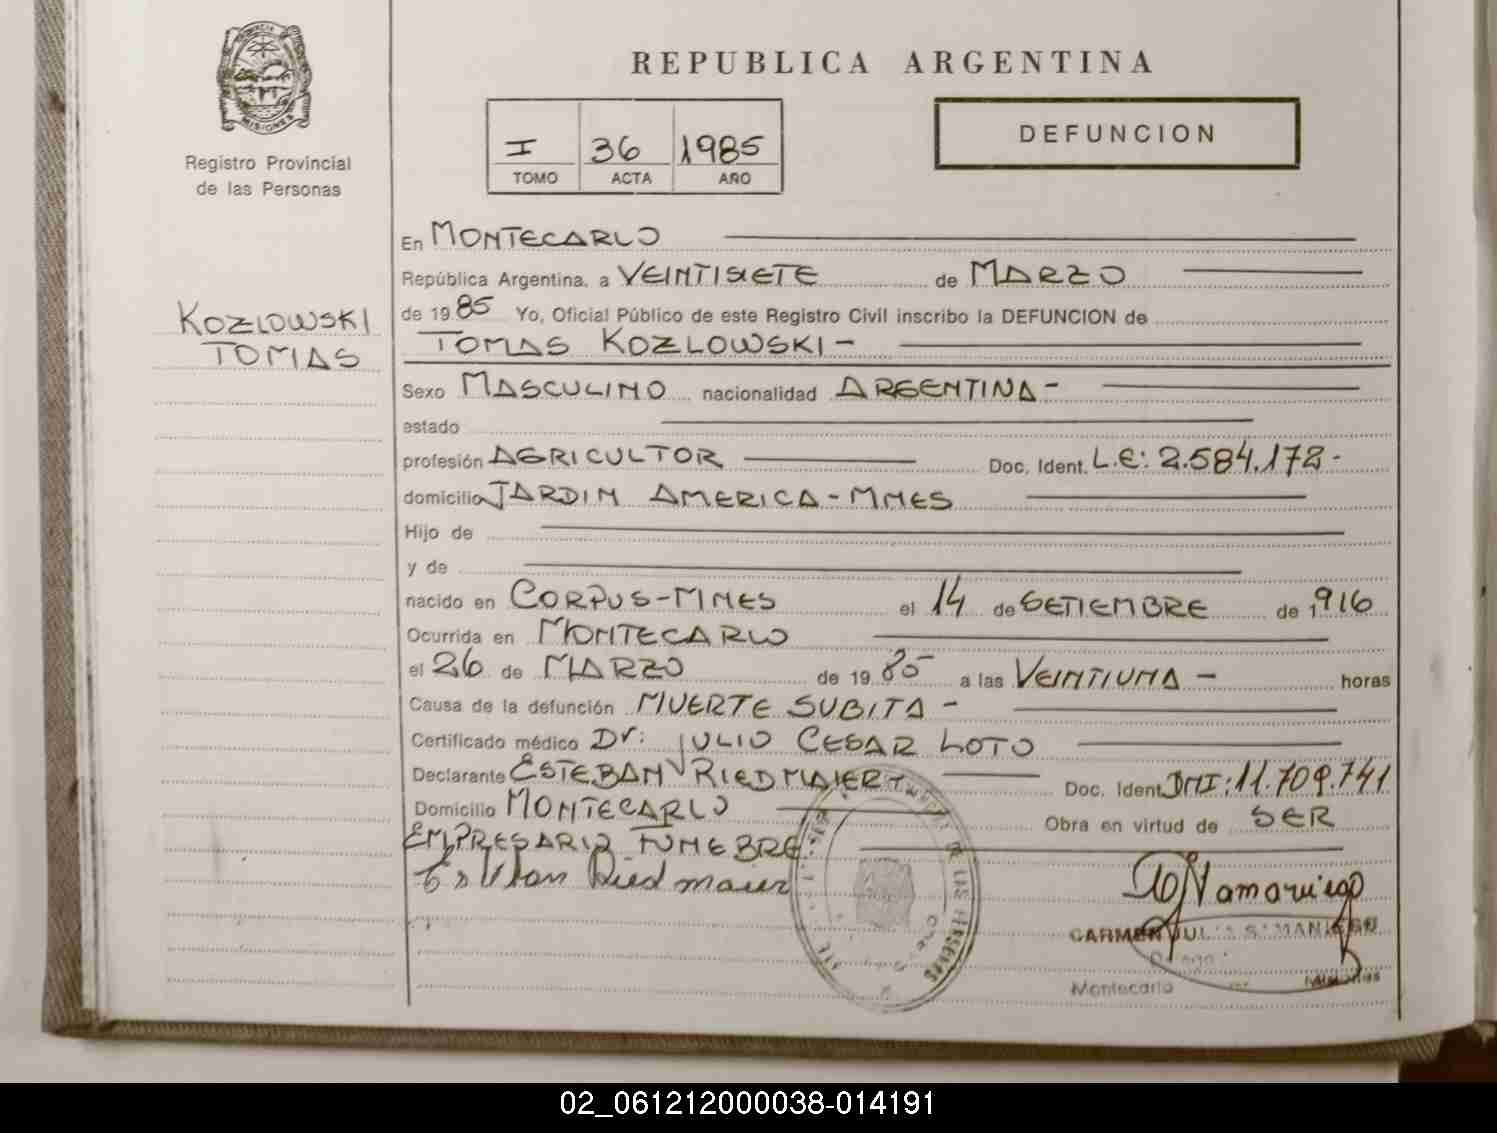 PROVINCIA DE
MISIONES
Registro Provincial
de las Personas
KOZLOWSKI
TOMAS
REPUBLICA ARGENTINA
I 36 1985
TOMO ACTA AÑO
DEFUNCION
En MONTECARLO
República Argentina, a VEINTISIETE de MARZO
de 1985 Yo, Oficial Público de este Registro Civil inscribo la DEFUNCION de
TOMAS KOZLOWSKI-
Sexo MASCULINO nacionalidad ARGENTINA-
estado
profesión AGRICULTOR Doc. Ident. L.E: 2.584.172-
domicilio JARDIN AMERICA-MNES
Hijo de
y de
nacido en CORPUS-MNES el 14 de SETIEMBRE de 1916
Ocurrida en MONTECARLO
el 26 de MARZO de 1985 a las VEINTIUNA- horas
Causa de la defunción MUERTE SUBITA-
Certificado médico Dr: JULIO CESAR LOTO
Declarante ESTEBAN RIEDMAIER Doc. Ident DNI: 11.709.741
Domicilio MONTECARLO Obra en virtud de SER
EMPRESARIO FUNEBRE
Esteban Riedmaier
DE LAS PERSONAS
CARMEN
Montecarlo Misiones
02_061212000038-014191